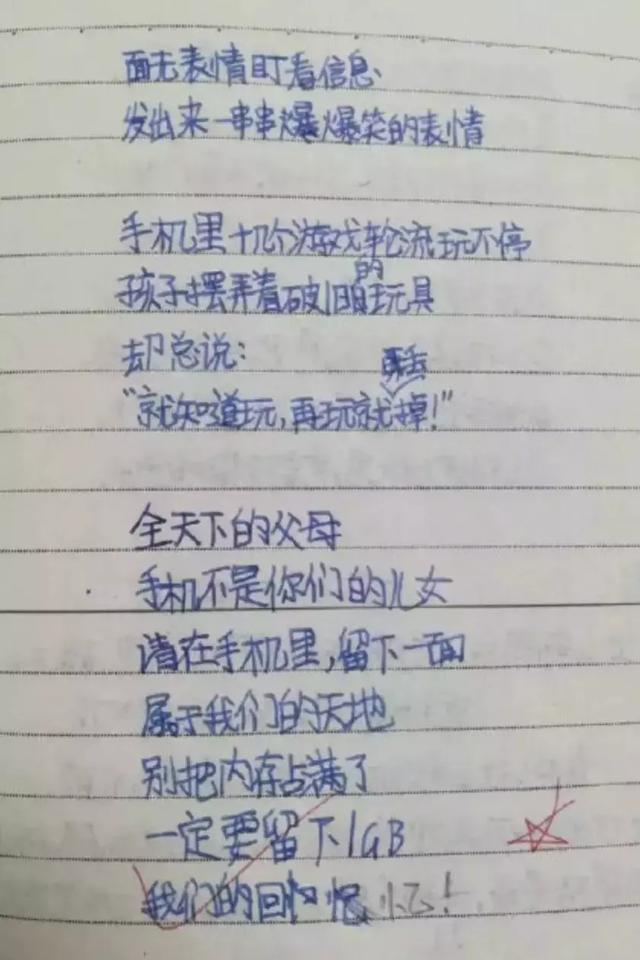 面无表情盯着信息、
发出来一串串爆爆笑的表情
手机里十几个游戏轮流玩不停
孩子摆弄着破旧的玩具
却总说：
“就知道玩，再玩就丢掉！”
全天下的父母
手机不是你们的儿女
请在手机里，留下一面
属于我们的天地
别把内存占满了
一定要留下1GB
我们的回忆！